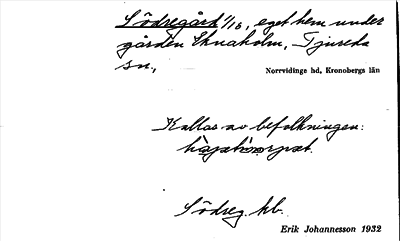 Södregård 1/16, eget hem under
gården Eknaholm, Tjureda
sn.,
Norrvidinge hd, Kronobergs län
Kallas av befolkningen:
Södreg. hb.
Erik Johannesson 1932